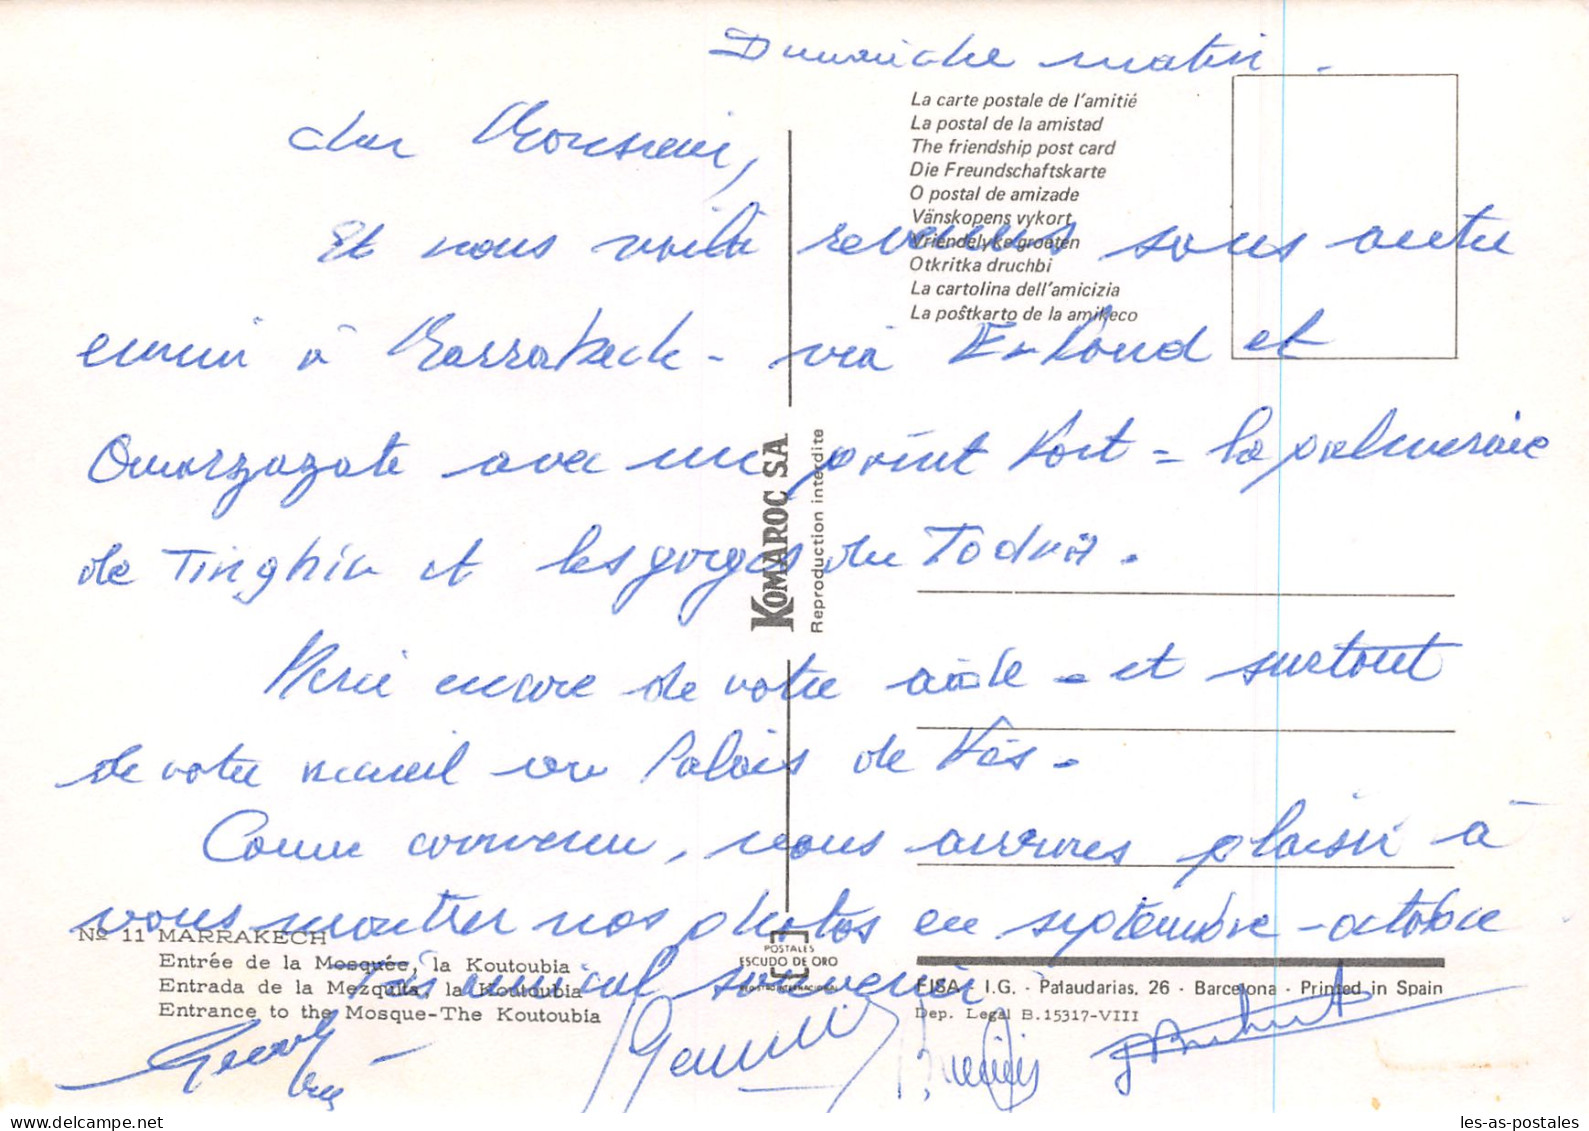 Dimanche matin.
La carte postale de l'amitié
La postal de la amistad
The friendship post card
Die Freundschaftskarte
O postal de amizade
Vänskopens vykort
Vriendelyke groeten
Otkritka druchbi
La cartolina dell'amicizia
La poŝtkarto de la amikeco
cher Monsieur,
Et nous voilà revenus sans autre
ennui à Marrakech - via Erfoud et
Ouarzazate avec un point fort = la palmeraie
de Tinghir et les gorges du Todra.
Merci encore de votre aide - et surtout
de votre accueil au Palais de Fès -
Comme convenu, nous aurons plaisir à
vous montrer nos photos en septembre - octobre
Très amical souvenir
KOMAROC S.A.
Reproduction interdite
Nº 11 MARRAKECH
Entrée de la Mosquée, la Koutoubia
Entrada de la Mezquita, la Koutoubia
Entrance to the Mosque-The Koutoubia
POSTALES
ESCUDO DE ORO
REGISTRO INTERNACIONAL
FISA - I.G. - Palaudarias, 26 - Barcelona - Printed in Spain
Dep. Legal B.15317-VIII
les-as-postales - delcampe.net